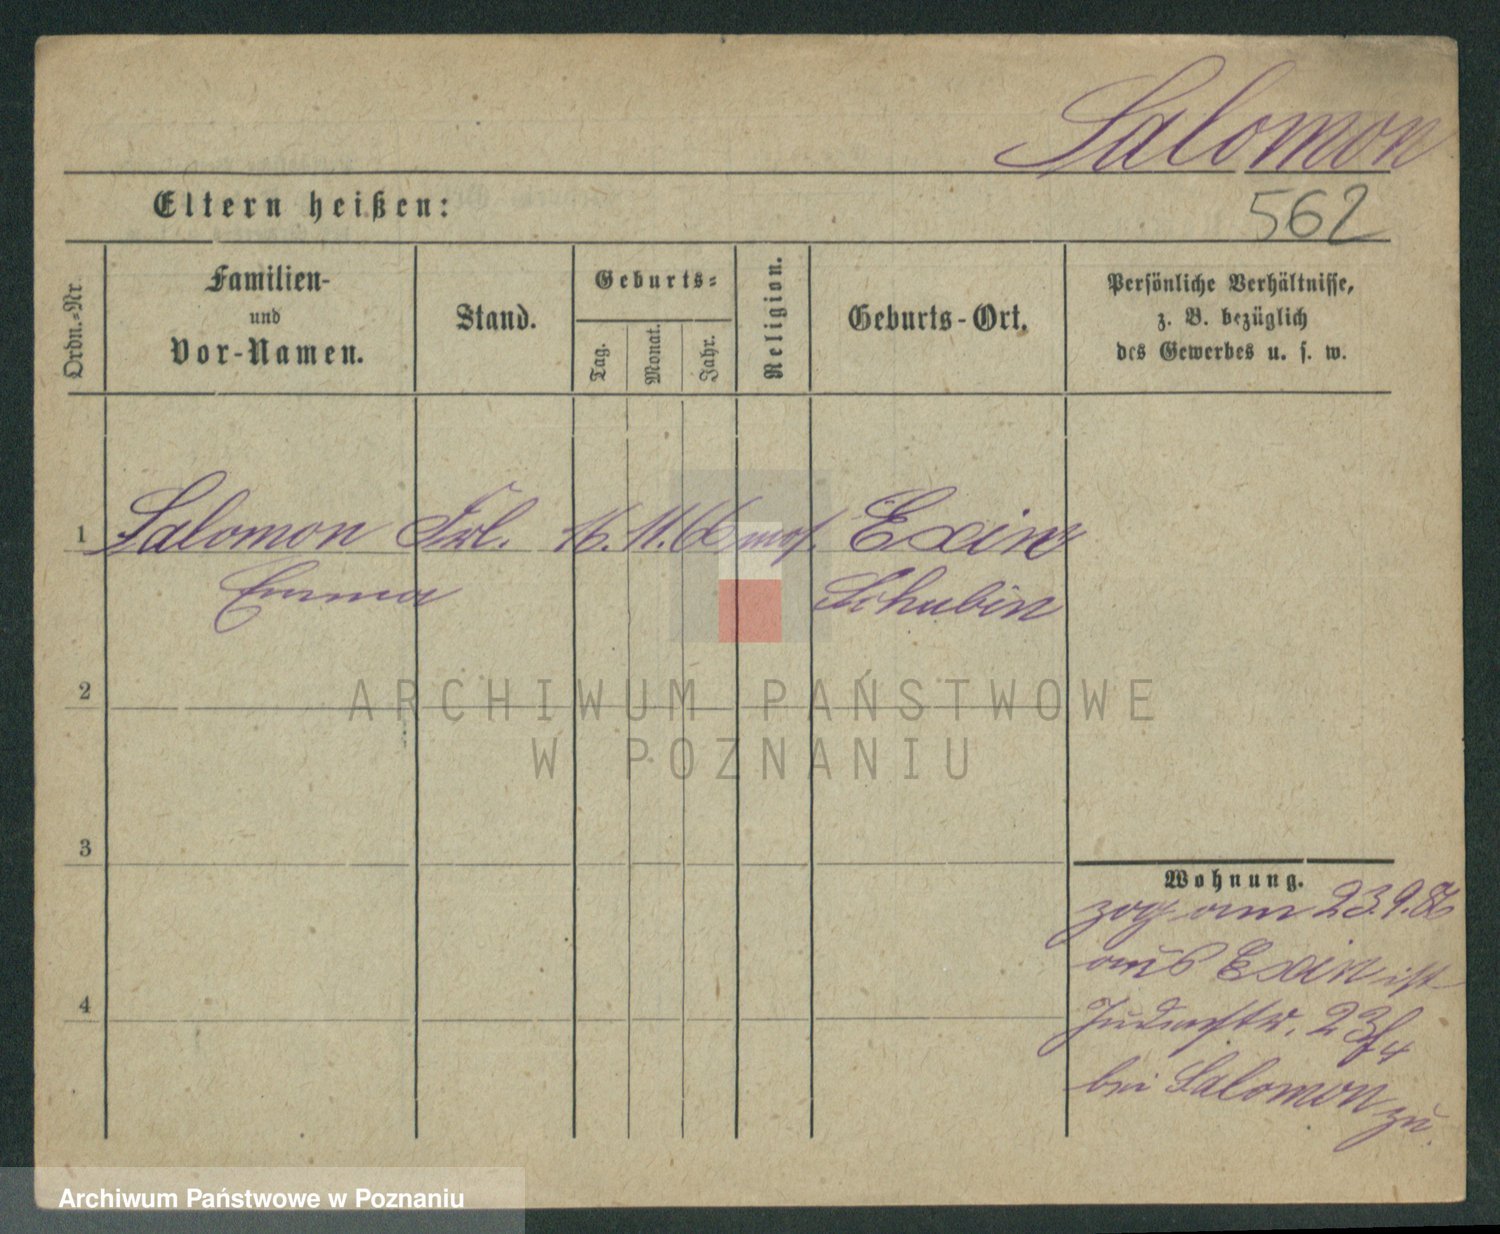 Salomon
Eltern heißen:
562
Ordn.-Nr.
Familien-
und
Vor-Namen.
Stand.
Geburts-
Tag.
Monat.
Jahr.
Religion.
Geburts-Ort.
Persönliche Verhältnisse,
z. B. bezüglich
des Gewerbes u. s. w.
1 Salomon Frl. 16. 11. 66 mos. Exin
Emma Schubin
2
ARCHIWUM PAŃSTWOWE
W POZNANIU
3
Wohnung.
zog am 23.9.86
aus Exin ist
4
Judenstr. 23/4
bei Salomon zu.
Archiwum Państwowe w Poznaniu